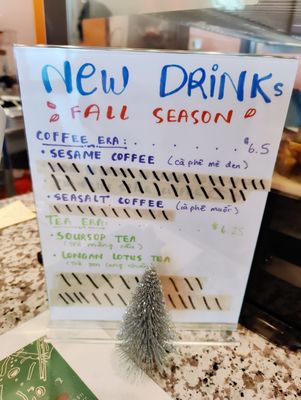 New Drinks
Fall Season
Coffee Era: . . . . . . . . $6.5
• Sesame Coffee (cà phê mè đen)
• Seasalt Coffee (cà phê muối)
Tea Era: $6.25
• Soursop Tea
(trà mãng cầu)
• Longan Lotus Tea
(trà sen long nhãn)